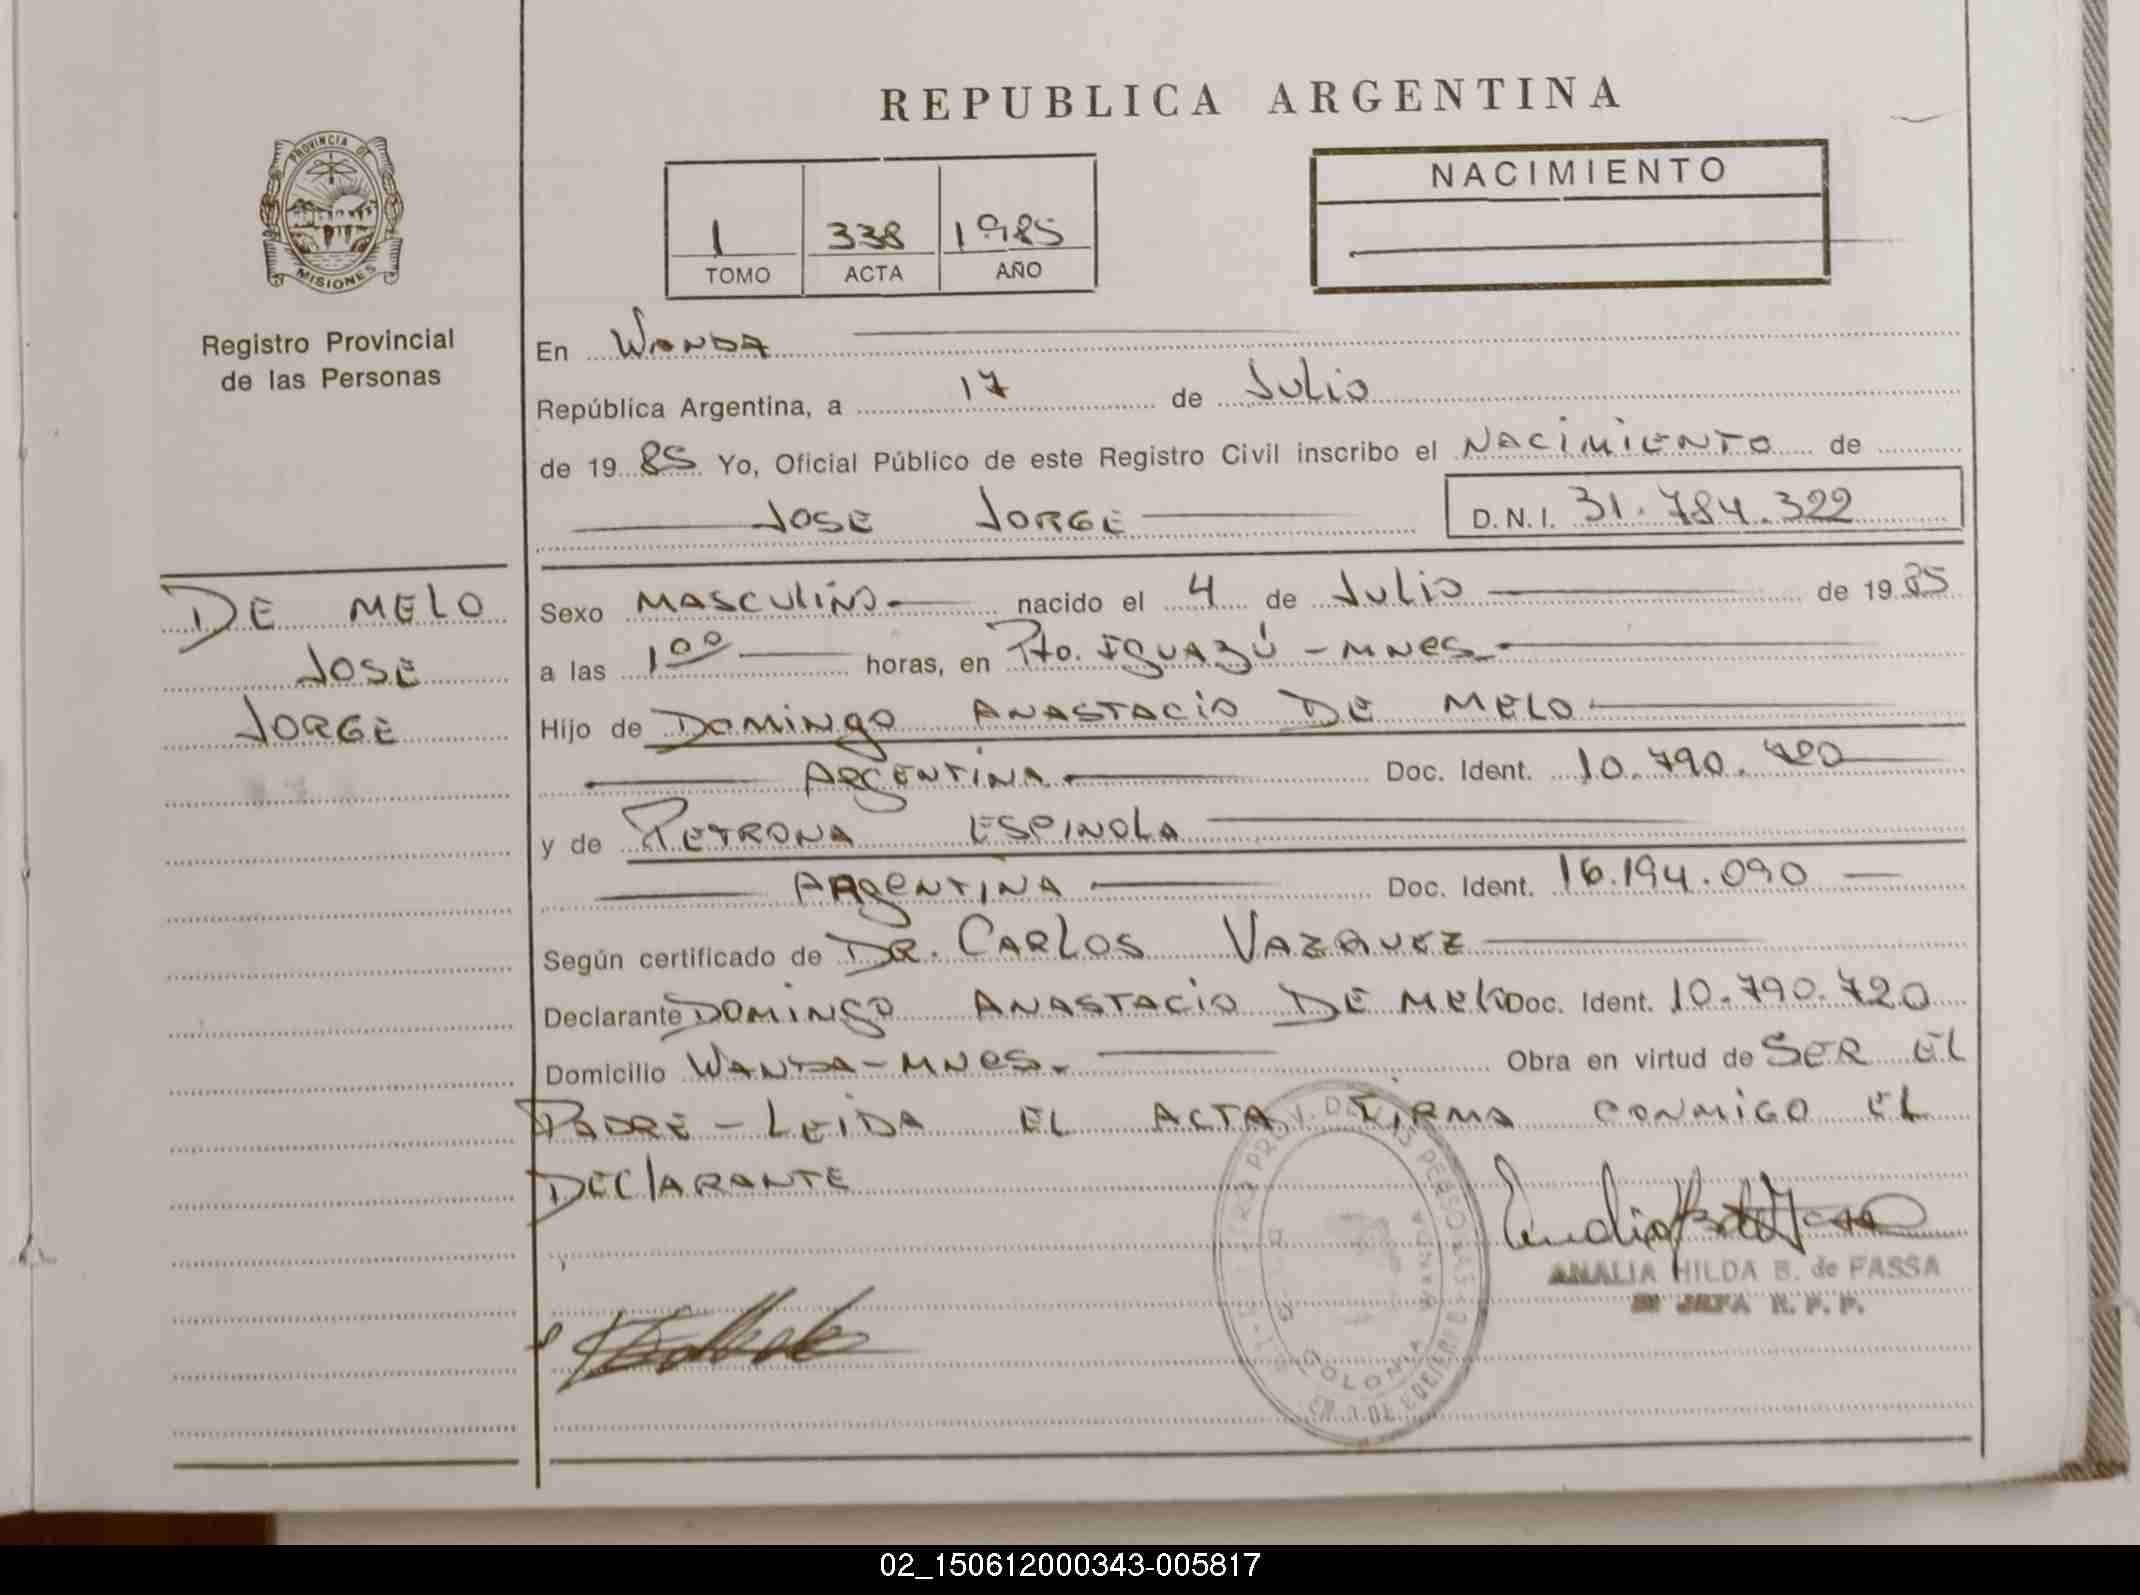 REPUBLICA ARGENTINA
PROVINCIA DE
MISIONES
Registro Provincial
de las Personas
1 338 1985
TOMO ACTA AÑO
NACIMIENTO
En WANDA
República Argentina, a 17 de Julio
de 19 85 Yo, Oficial Público de este Registro Civil inscribo el NACIMIENTO de
JOSE JORGE D.N.I. 31.784.322
DE MELO
JOSE
JORGE
Sexo MASCULINO nacido el 4 de Julio de 19 85
a las 1 00 horas, en Pto. IGUAZÚ - MNES.
Hijo de DOMINGO ANASTACIO DE MELO
ARGENTINA Doc. Ident. 10.790.720
y de PETRONA ESPINOLA
ARGENTINA Doc. Ident. 16.194.090
Según certificado de DR. CARLOS VAZQUEZ
Declarante DOMINGO ANASTACIO DE MELO Doc. Ident. 10.790.720
Domicilio WANDA - MNES. Obra en virtud de SER EL
PADRE - LEIDA EL ACTA FIRMA CONMIGO EL
DECLARANTE
ANALIA HILDA B. de FASSA
JEFA R. P. P.
COLONIA WANDA
02_150612000343-005817